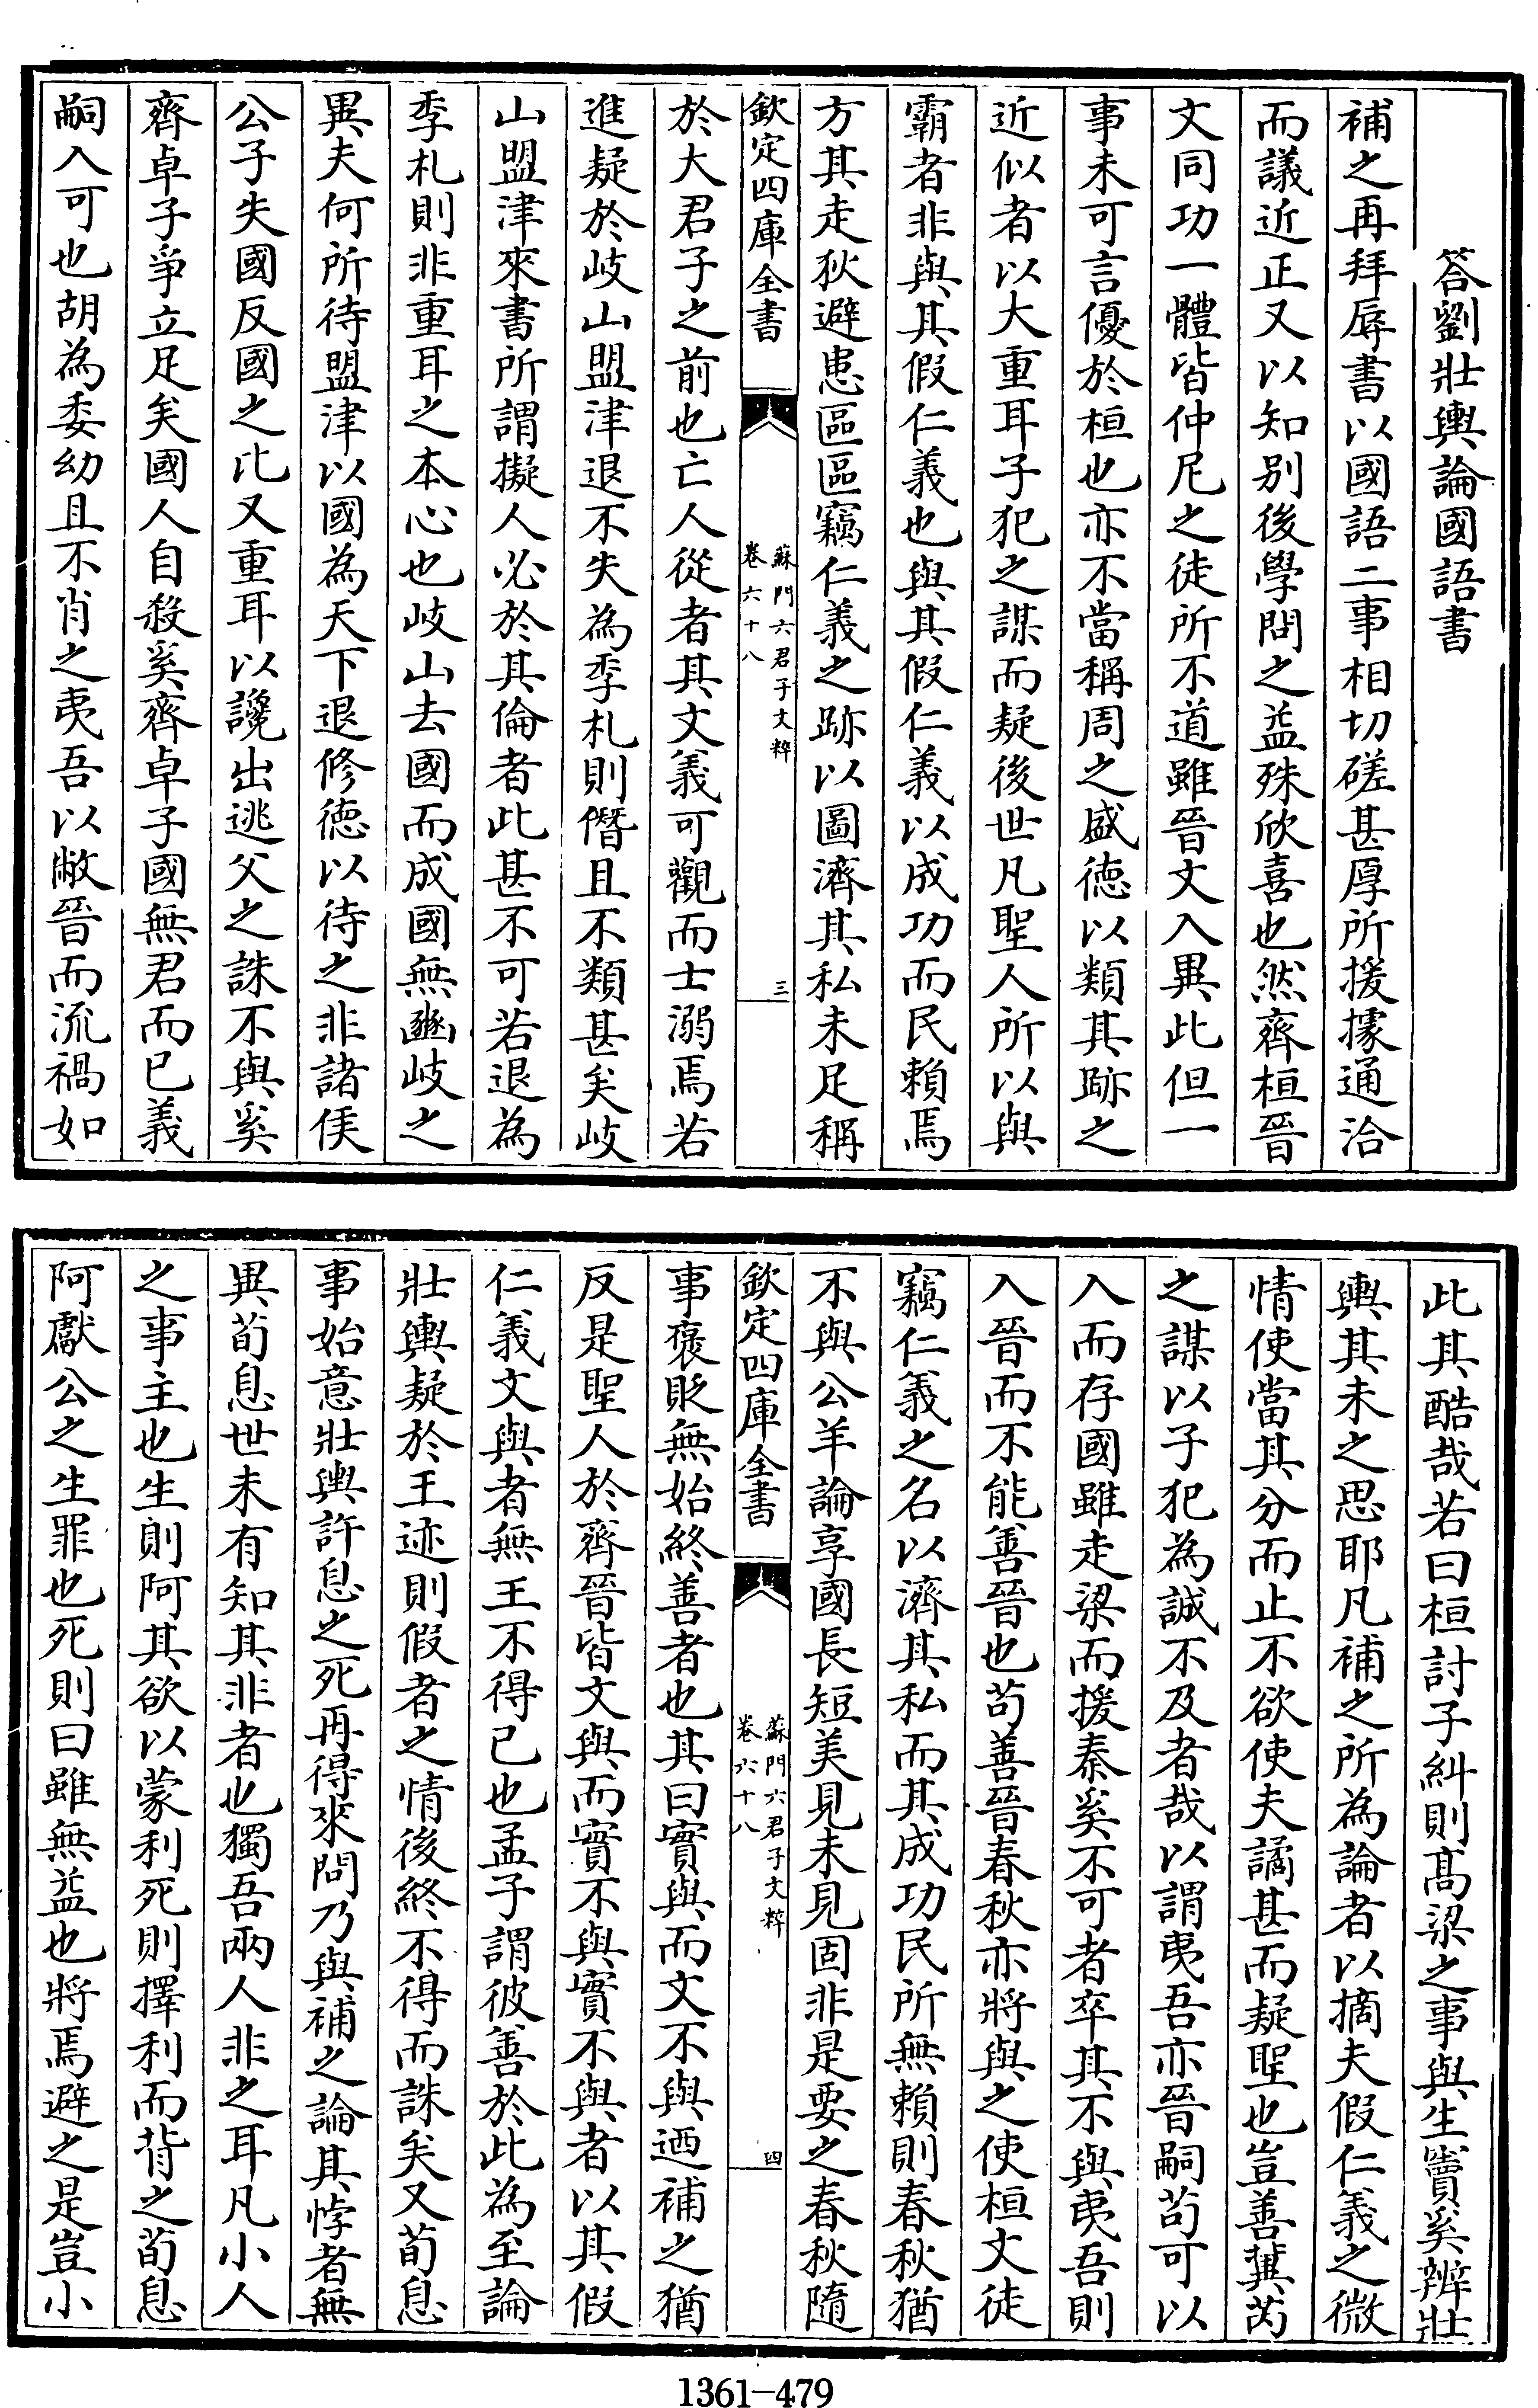 答劉壯輿論國語書
補之再拜辱書以國語二事相切磋甚厚所援據通洽
而議近正又以知别後學問之益殊欣喜也然齊桓晉
文同功一體皆仲尼之徒所不道雖晉文入異此但一
事未可言優於桓也亦不當稱周之盛徳以類其跡之
近似者以大重耳子犯之謀而疑後世凡聖人所以與
霸者非與其假仁義也與其假仁義以成功而民賴焉
方其走狄避患區區竊仁義之跡以圖濟其私未足稱
欽定四庫全書
蘇門六君子文粹
卷六十八
三
於大君子之前也亡人從者其文義可觀而士溺焉若
進疑於岐山盟津退不失為季札則僭且不類甚矣岐
山盟津來書所謂擬人必於其倫者此甚不可若退為
季札則非重耳之本心也岐山去國而成國無豳岐之
異夫何所待盟津以國為天下退修徳以待之非諸侯
公子失國反國之比又重耳以讒出逃父之誅不與奚
齊卓子爭立足矣國人自殺奚齊卓子國無君而已義
嗣入可也胡為委幼且不肖之夷吾以敝晉而流禍如
此其酷哉若曰桓討子糾則髙梁之事與生竇奚辨壯
輿其未之思耶凡補之所為論者以摘夫假仁義之微
情使當其分而止不欲使夫譎甚而疑聖也豈善冀芮
之謀以子犯為誠不及者哉以謂夷吾亦晉嗣茍可以
入而存國雖走梁而援秦奚不可者卒其不與夷吾則
入晉而不能善晉也茍善晉春秋亦將與之使桓文徒
竊仁義之名以濟其私而其成功民所無賴則春秋猶
不與公羊論享國長短美見未見固非是要之春秋隨
欽定四庫全書
蘇門六君子文粹
卷六十八
四
事褒貶無始終善者也其曰實與而文不與迺補之猶
反是聖人於齊晉皆文與而實不與實不與者以其假
仁義文與者無王不得已也孟子謂彼善於此為至論
壯輿疑於王迹則假者之情後終不得而誅矣又荀息
事始意壯輿許息之死再得來問乃與補之論其悖者無
異荀息世未有知其非者也獨吾兩人非之耳凡小人
之事主也生則阿其欲以蒙利死則擇利而背之荀息
阿獻公之生罪也死則曰雖無益也將焉避之是豈小
1361-479